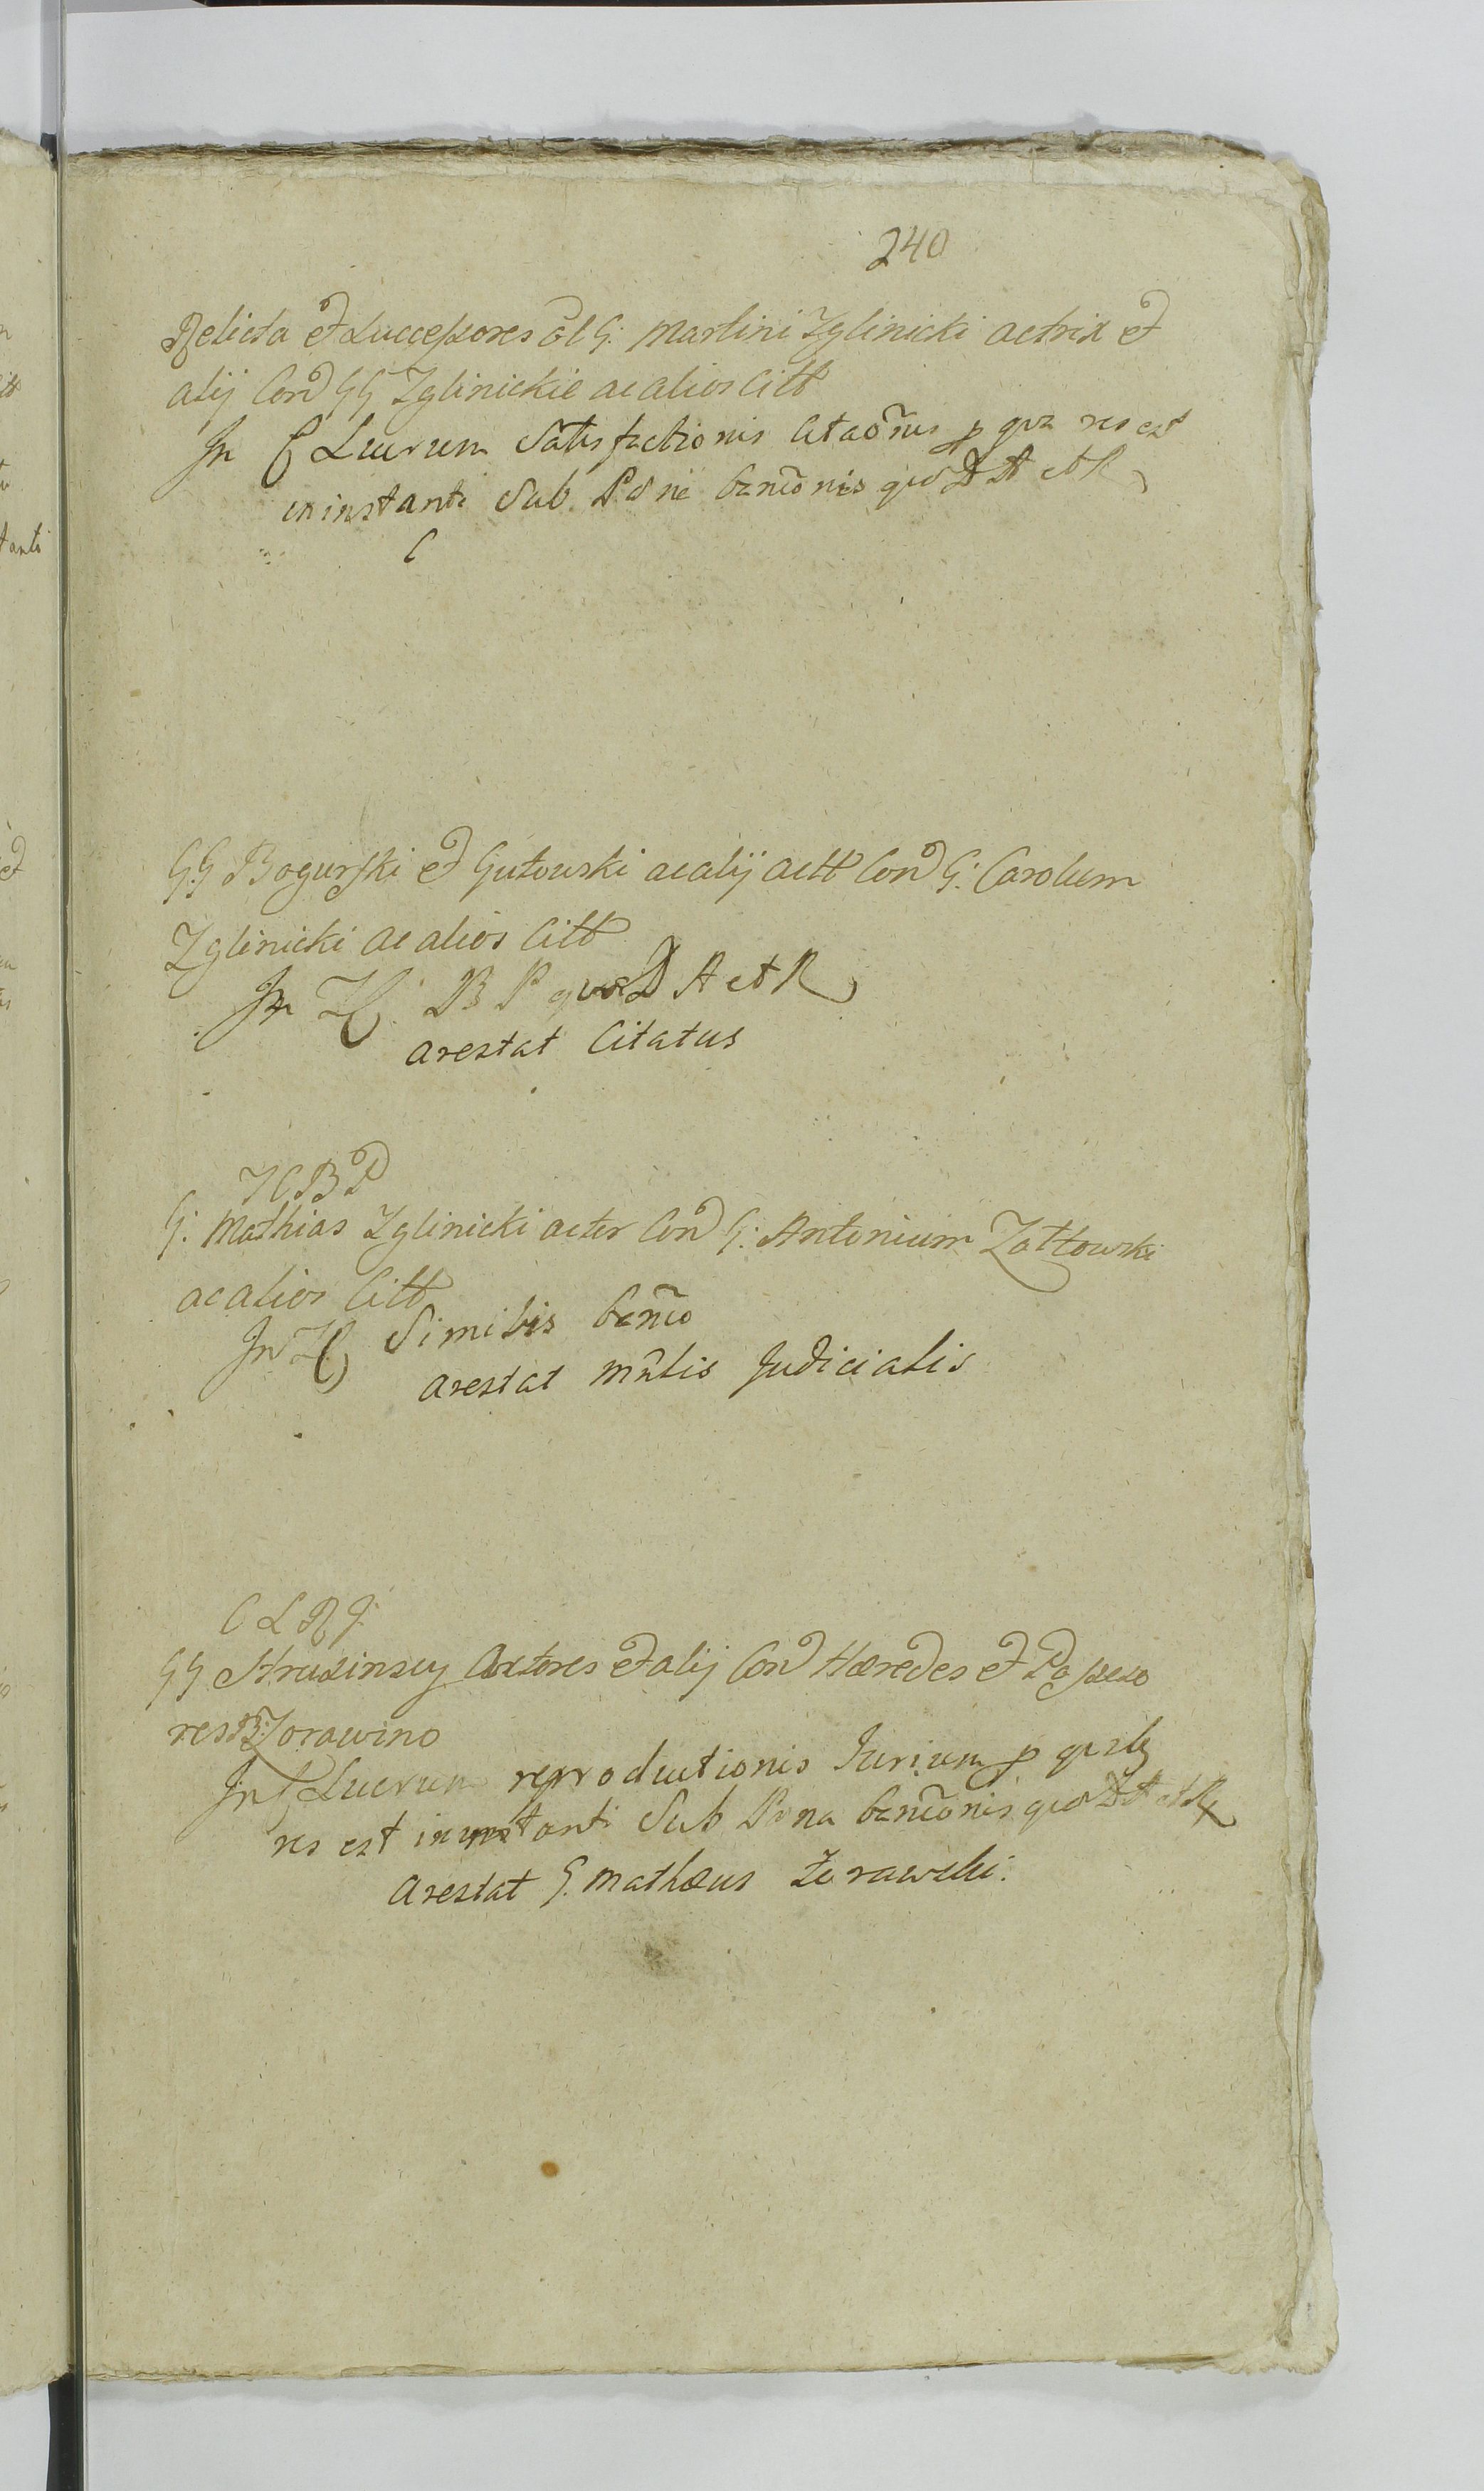 240
Relicta et Successores ol G: Martini Zglinicki actrix et
alij Con GG Zglinickie ac alios Citt
In C Lucrum Satisfactionis Citaõnis p qua res est
in instanti Sub banĩonis quo D A et R
C
GG Bogurski et Gutowski ac alij actt Con G: Carolum
Zglinicki ac alios Citt
In B P quo D A et R
arestat Citatus
I C B P
G: Mathias Zglinicki actor Con G: Antonium Zołtowski
ac alios Citt
In Similis banĩo
arestat mñlis Judicialis
C L R J:
GG Struzinscy Actores et alij Con Hæredes et Possesso
res Zorawino
In C Lucrum reproductionis Jurium p
res est in instanti Sub Pona banĩonis quo D A et R
arestat G. Mathæus Zorawski.
tanti
et